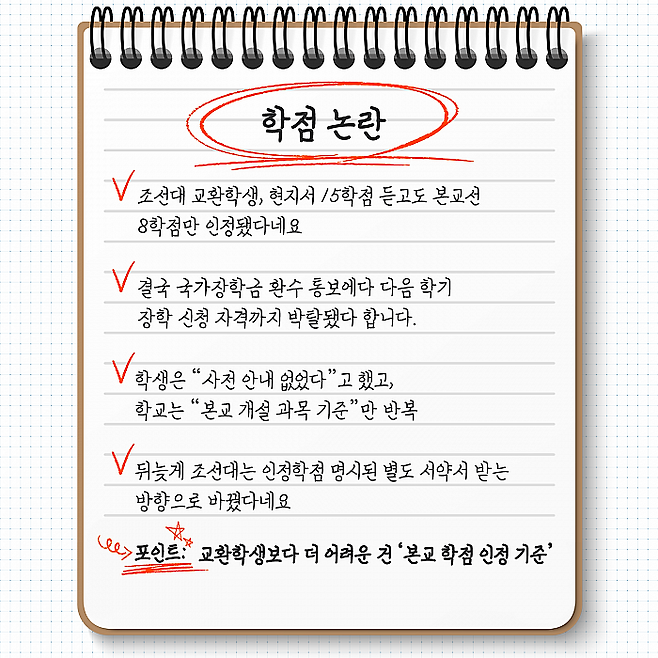 학점 논란
조선대 교환학생, 현지서 15학점 듣고도 본교선
8학점만 인정됐다네요
결국 국가장학금 환수 통보에다 다음 학기
장학 신청 자격까지 박탈됐다 합니다.
학생은 “사전 안내 없었다”고 했고,
학교는 “본교 개설 과목 기준”만 반복
뒤늦게 조선대는 인정학점 명시된 별도 서약서 받는
방향으로 바꿨다네요
포인트: 교환학생보다 더 어려운 건 ‘본교 학점 인정 기준’